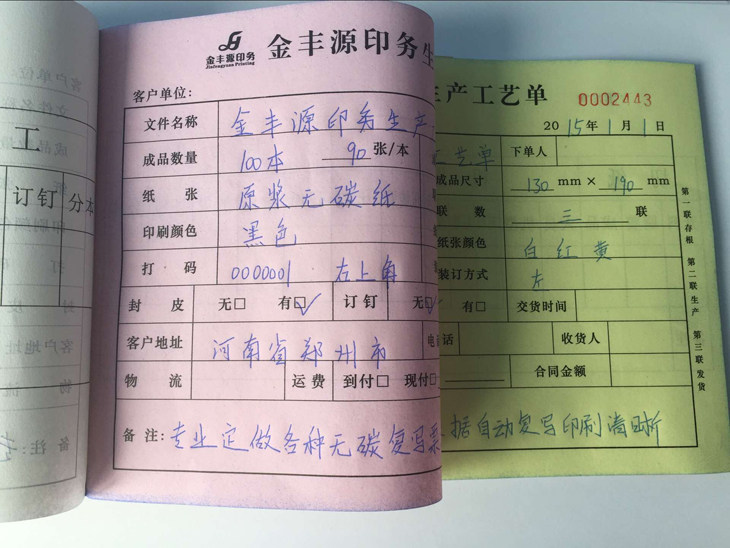 金丰源印务
Jinfengyuan Printing
金丰源印务生
产工艺单
0002443
客户单位:
2015年1月1日
文件名称 金丰源印务生产
工艺单 下单人
成品数量 100本 90张/本
成品尺寸 130 mm × 190 mm
纸张 原浆无碳纸
联数 三 联
印刷颜色 黑色
纸张颜色 白红黄
打码 0000001 右上角
装订方式 左
封皮 无□ 有□✓ 订钉 无□✓
有□ 交货时间
客户地址 河南省郑州市
电话 收货人
物流 运费 到付□ 现付□
合同金额
备注: 专业定做各种无碳复写票
据自动复写印刷清晰
第一联存根 第二联生产 第三联发货
工
订钉 分本